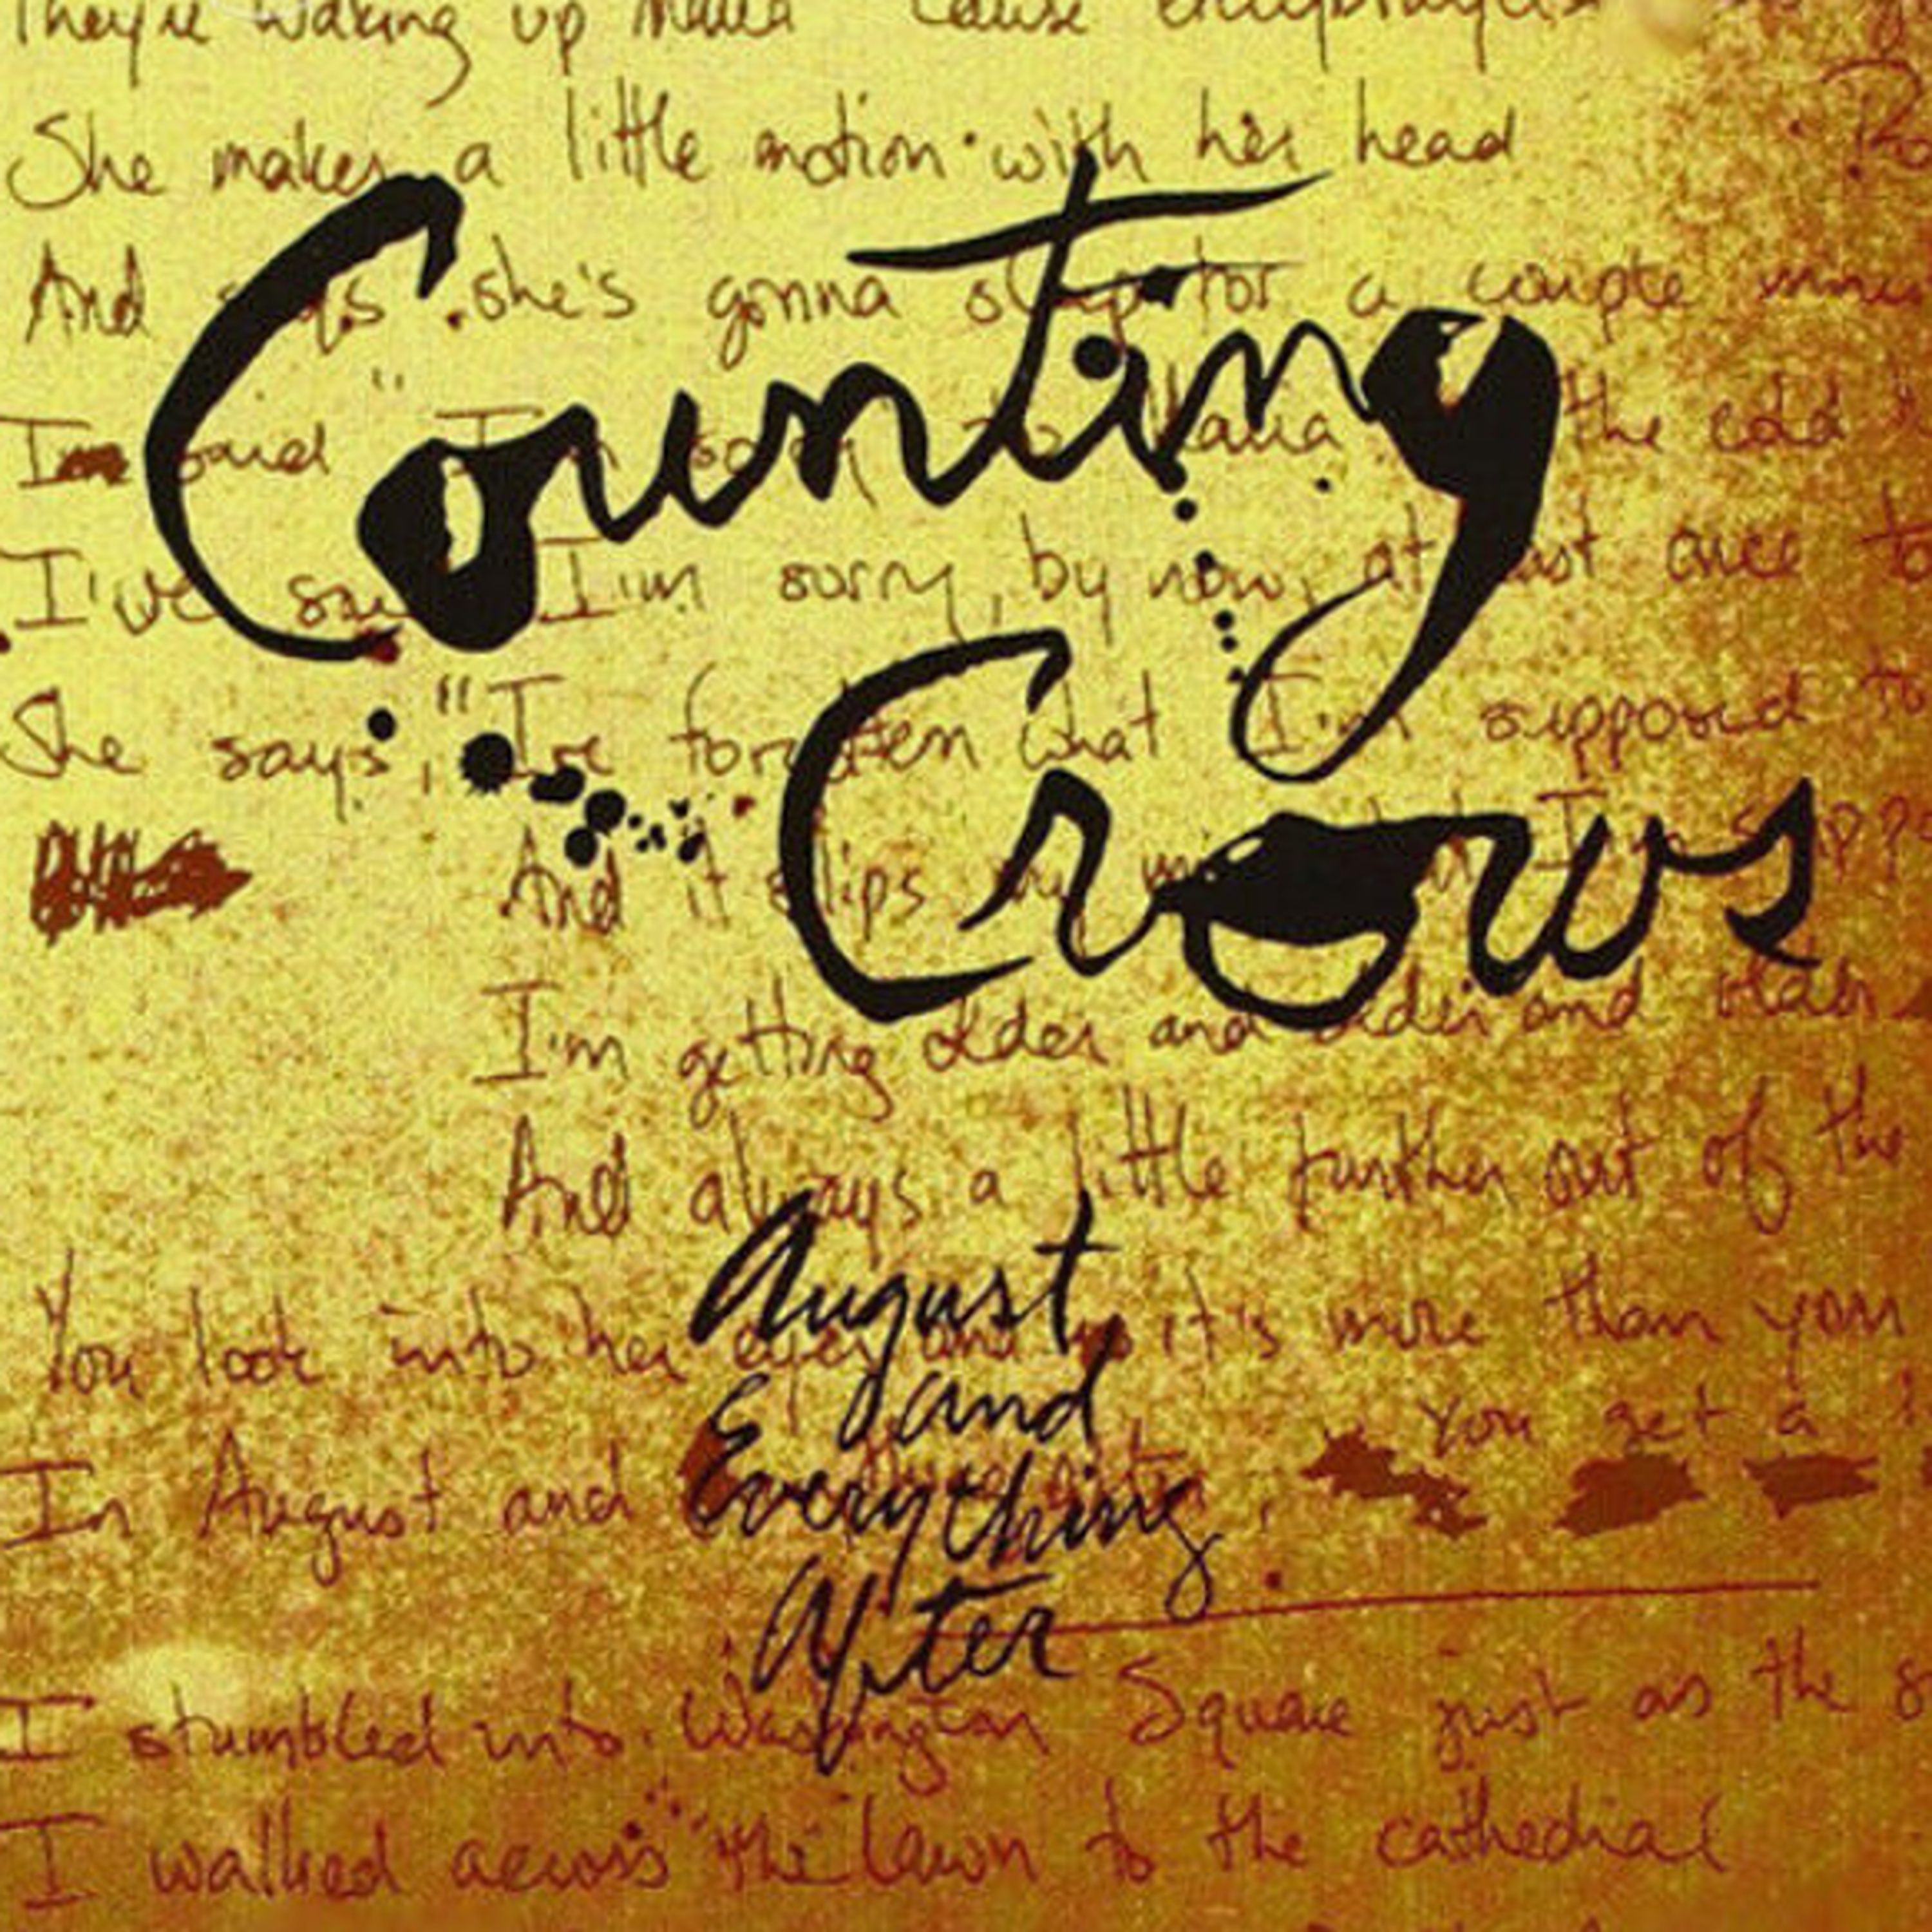 They're waking up Maria 'cause everybody's
She makes a little motion with her head
And says she's gonna sleep for a couple
Counting
I said "I'm sorry to Maria the cold
I've said I'm sorry, by now, at least once to
Crows
She says, "I've forgotten what I'm supposed to
And it slips my mind what I'm supp
I'm getting older and older and older
And always a little further out of the
August
You look into her eyes and it's more than your
and
You get a
In August and
Everything
After
I stumbled into Washington Square just as the s
I walked across the lawn to the cathedral